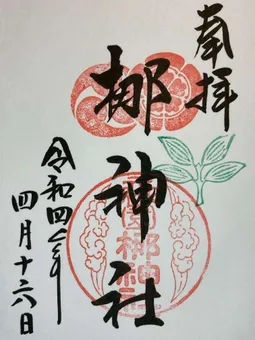 奉拝
梛神社
令和四年
四月十六日